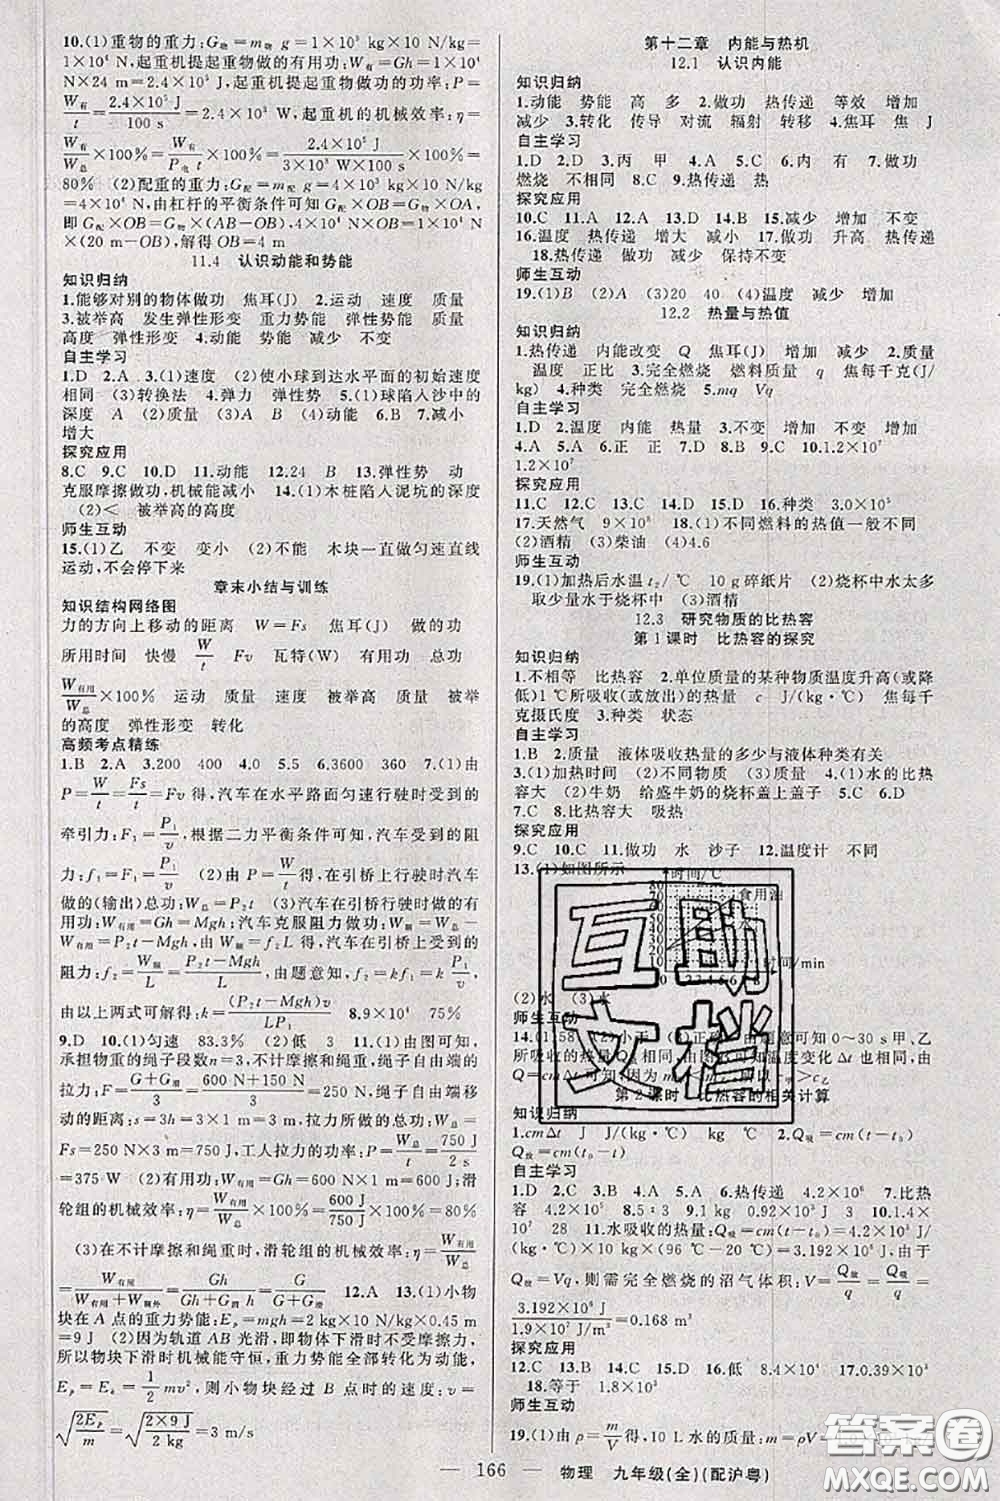 10.(1)重物的重力:G物=m物 g=1×10³ kg×10 N/kg
=1×10⁴ N,起重机提起重物做的有用功:W有=Gh=1×10⁴
N×24 m=2.4×10⁵ J,起重机提起重物做功的功率:P=
W有/t=2.4×10⁵ J/100 s=2.4×10³ W,起重机的机械效率:η=
W有/W总×100%=W有/P电 t×100%=2.4×10⁵ J/3×10³ W×100 s×100%=
80% (2)配重的重力:G配=m配 g=4×10³ kg×10 N/kg
=4×10⁴ N,由杠杆的平衡条件可知G配×OB=G物×OA,
即G配×OB=G物×(AB-OB),4×10⁴ N×OB=1×10⁴ N
×(20 m-OB),解得OB=4 m
11.4 认识动能和势能
知识归纳
1.能够对别的物体做功 焦耳(J) 2.运动 速度 质量
3.被举高 发生弹性形变 重力势能 弹性势能 质量
高度 弹性形变 4.动能 势能 减少 不变
自主学习
1.D 2.A 3.(1)速度 (2)使小球到达水平面的初始速度
相同 (3)转换法 4.弹力 弹性势 5.(1)球陷入沙中的
深度 A (2)质量 (3)A、C 6.B 7.减小
增大
探究应用
8.C 9.C 10.D 11.动能 12.24 B 13.弹性势 动
克服摩擦做功,机械能减小 14.(1)木桩陷入泥坑的深度
(2)< 被举高的高度
师生互动
15.(1)乙 不变 变小 (2)不能 木块一直做匀速直线
运动,不会停下来
章末小结与训练
知识结构网络图
力的方向上移动的距离 W=Fs 焦耳(J) 做的功
所用时间 快慢 W/t Fv 瓦特(W) 有用功 总功
W有用/W总×100% 运动 质量 速度 被举高 质量 被举
的高度 弹性形变 转化
高频考点精练
1.B 2.A 3.200 400 4.D 5.5 6.3600 360 7.(1)由
P=W/t=Fs/t=Fv得,汽车在水平路面匀速行驶时受到的
牵引力:F₁=P₁/v,根据二力平衡条件可知,汽车受到的阻
力:f₁=F₁=P₁/v (2)由P=W/t得,在引桥上行驶时汽车
做的(输出)总功:W总=P₂t (3)汽车在引桥行驶时做的有
用功:W有用=Gh=Mgh;汽车克服阻力做功:W额=W总-
W有用=P₂t-Mgh,由W额=f₂L得,汽车在引桥上受到的
阻力:f₂=W额/L=P₂t-Mgh/L,由题意知,f₂=kf₁=k P₁/v,
由以上两式可解得:k=(P₂t-Mgh)v/LP₁ 8.9×10⁴ 75%
9.D 10.(1)匀速 83.3% (2)低 3 11.(1)由图可知,
承担物重的绳子段数n=3,不计摩擦和绳重,绳子自由端的
拉力:F=G+G滑/3=600 N+150 N/3=250 N,绳子自由端移
动的距离:s=3h=3×1 m=3 m,拉力所做的总功:W总=
Fs=250 N×3 m=750 J,工人拉力的功率:P=W总/t=750 J/2 s
=375 W (2)有用功:W有用=Gh=600 N×1 m=600 J,滑
轮组的机械效率:η=W有用/W总×100%=600 J/750 J×100%=80%
(3)在不计摩擦和绳重时,滑轮组的机械效率:η=W有用/W总
=W有用/W有用+W额外=Gh/Gh+G滑h=G/G+G滑 12.A 13.(1)小物
块在A点的重力势能:Eₚ=mgh=2 kg×10 N/kg×0.45 m
=9 J (2)因为轨道AB光滑,即物体下滑时不受摩擦力,
所以物块下滑时机械能守恒,重力势能全部转化为动能,
Eₚ=Eₖ=1/2 mv²,则小物块经过B点时的速度:v=
√2Eₚ/m=√2×9 J/2 kg=3 m/s
第十二章 内能与热机
12.1 认识内能
知识归纳
1.动能 势能 高 多 2.做功 热传递 等效 增加
减少 3.转化 传导 对流 辐射 转移 4.焦耳 焦 J
自主学习
1.D 2.D 3.丙 甲 4.A 5.C 6.内 有 7.做功
燃烧 不相同 8.C 9.热传递 热
探究应用
10.C 11.A 12.A 13.D 14.B 15.减少 增加 不变
16.温度 热传递 增大 减小 17.做功 升高 热传递
18.热传递 减少 保持不变
师生互动
19.(1)B (2)A (3)20 40 (4)温度 减少 增加
12.2 热量与热值
知识归纳
1.热传递 内能改变 Q 焦耳(J) 增加 减少 2.质量
温度 正比 3.完全燃烧 燃料质量 q 焦每千克(J/
kg) 4.种类 完全燃烧 5.mq Vq
自主学习
1.D 2.温度 内能 热量 3.不变 增加 不变 不变
4.A 5.A 6.正 正 7.D 8.C 9.C 10.1.2×10⁷
1.2×10⁷
探究应用
11.C 12.C 13.C 14.D 15.D 16.种类 3.0×10⁵
17.天然气 9×10⁵ 18.(1)不同燃料的热值一般不同
(2)酒精 (3)柴油 (4)4.6
师生互动
19.(1)加热后水温t₂/℃ 10 g碎纸片 (2)烧杯中水太多
取少量水于烧杯中 (3)酒精
12.3 研究物质的比热容
第1课时 比热容的探究
知识归纳
1.质量 比热容 2.单位质量的某种物质温度升高(或降
低)1℃所吸收(或放出)的热量 c J/(kg·℃) 焦每千
克摄氏度 3.种类 状态
自主学习
1.B 2.质量 液体吸收热量的多少与液体种类有关
3.(1)加热时间 (2)不同物质 (3)质量 4.(1)水的比热
容大 (2)牛奶 给盛牛奶的烧杯盖上盖子 5.C 6.D
7.C 8.比热容大 吸热
探究应用
9.C 10.C 11.做功 水 沙子 12.温度计 不同
13.(1)如图所示
时间/℃
食用油
时间/min
(2)水 (3)水
师生互动
第2课时 比热容的相关计算
知识归纳
1.cmΔt J J/(kg·℃) kg ℃ 2.Q吸=cm(t-t₀)
Q放=cm(t₀-t)
自主学习
1.D 2.C 3.B 4.A 5.A 6.热传递 4.2×10⁶ 7.比热
容 4.2×10⁵ 8.5:3 9.1 kg 10.1.4×
10⁷ 28 11.水吸收的热量:Q吸=cm(t-t₀)=4.2×10³ J/
(kg·℃)×10 kg×(96 ℃-20 ℃)=3.192×10⁶ J,由于
Q放=Vq,则需完全燃烧的沼气体积:V=Q放/q=Q吸/q=
3.192×10⁶ J/1.9×10⁷ J/m³=0.168 m³
探究应用
12.C 13.C 14.A 15.D 16.低 8.4×10⁴ 17.0.39×10³
18.等于 1.8×10³
师生互动
19.(1)由ρ=m/V得,10 L水的质量:m=ρV=
互助文档
— 166 — 物理 九年级(全)(配沪粤)
答案圈
MXQE.COM